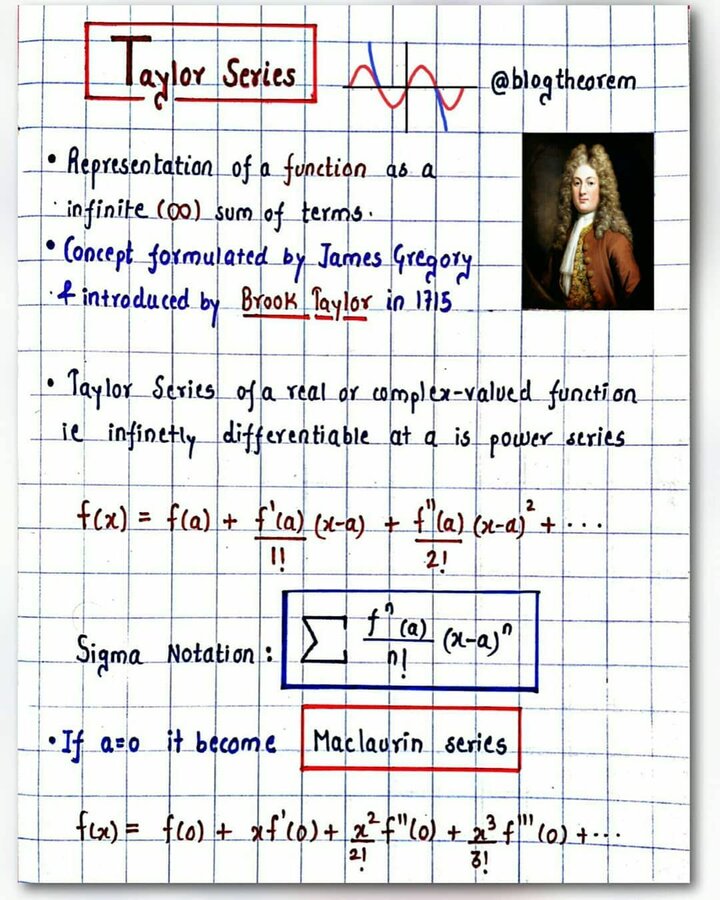 Taylor Series
@blogtheorem
• Representation of a function as a
infinite (∞) sum of terms.
• Concept formulated by James Gregory
& introduced by Brook Taylor in 1715
• Taylor Series of a real or complex-valued function
ie infinetly differentiable at a is power series
f(x) = f(a) + f'(a)/1! (x-a) + f''(a)/2! (x-a)² + ...
Sigma Notation : ∑ fⁿ(a)/n! (x-a)ⁿ
• If a=0 it become Maclaurin series
f(x) = f(0) + xf'(0) + x²/2! f''(0) + x³/3! f'''(0) + ...